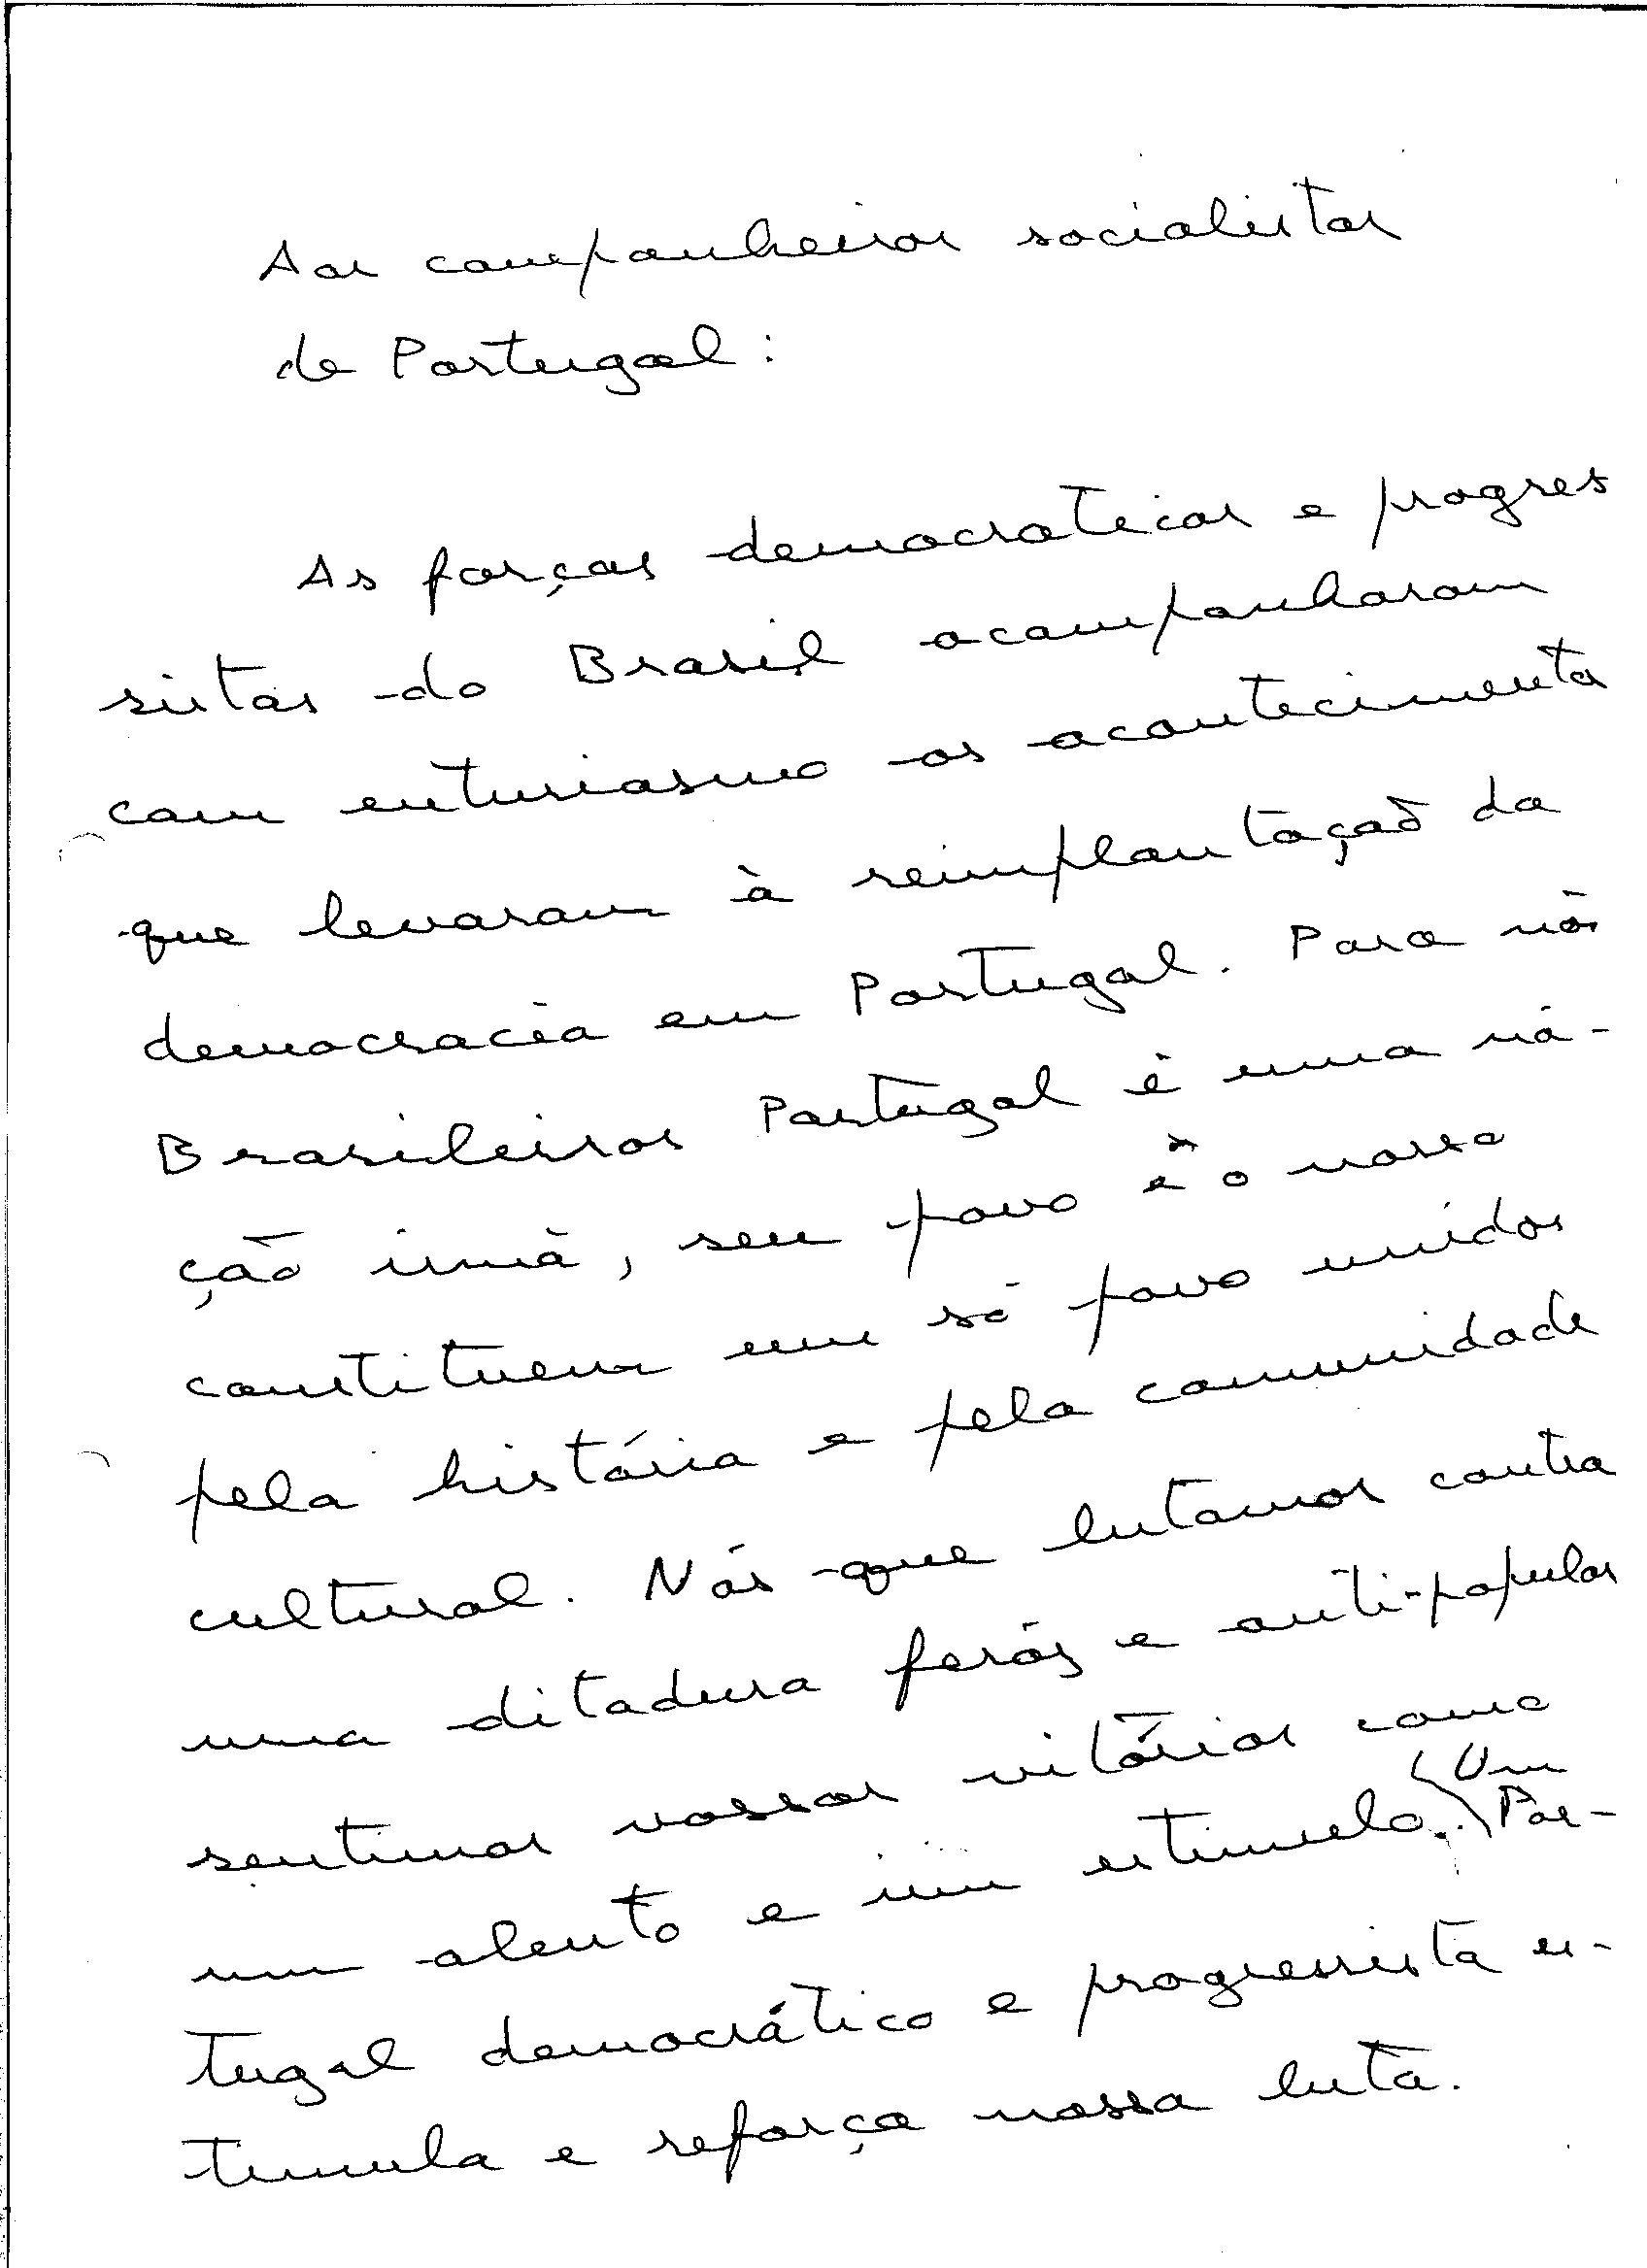 Aos companheiros socialistas
de Portugal:
As forças democraticas e progres
sistas do Brasil acompanharam
com enturiasmo os acontecimentos
que levaram à reimplantação da
democracia em Portugal. Para nós
Brasileiros Portugal é uma ná-
ção irmã, seu povo e o nosso
constituem um só povo unidos
pela história e pela comunidade
cultural. Nós que lutamos contra
uma ditadura ferós e anti-popular
sentimos vossas vitórias como
um alento e um estimulo. Um Por-
tugal democrático e progressista es-
timula e reforça nossa luta.